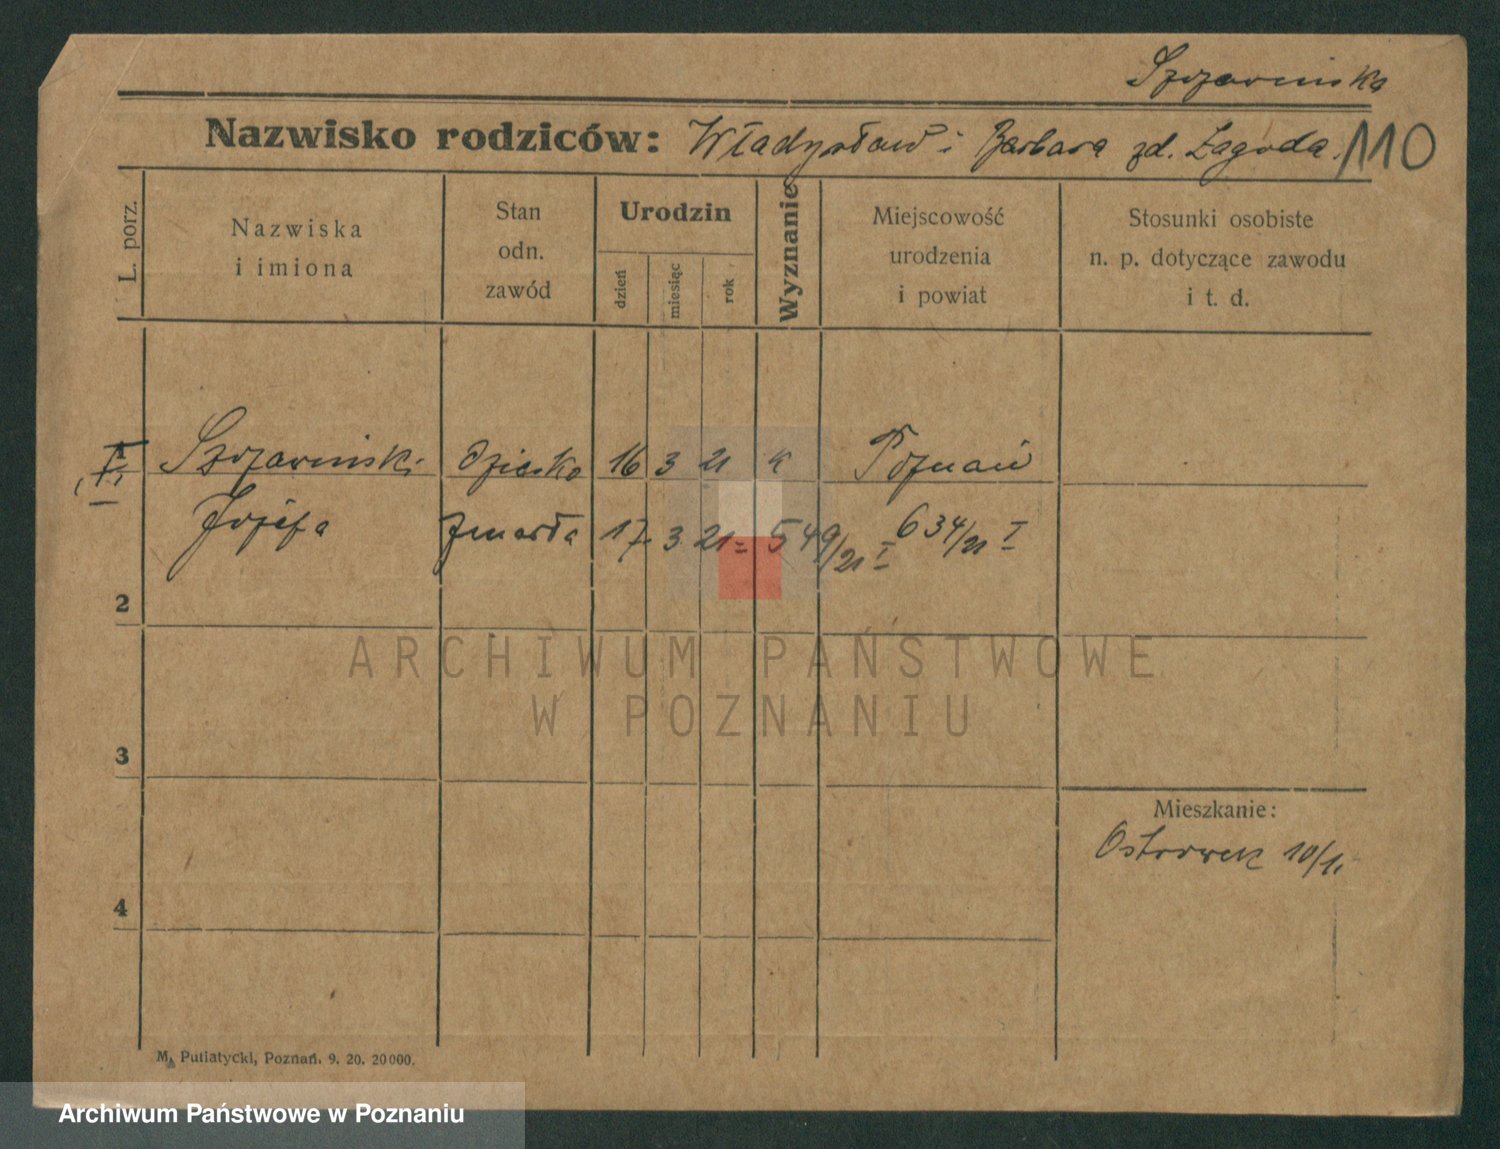 Szczawińska
Nazwisko rodziców: Władysław i Barbara zd. Łagoda. 110
L. porz.
Nazwiska
i imiona
Stan
odn.
zawód
Urodzin
dzień
miesiąc
rok
Wyznanie
Miejscowość
urodzenia
i powiat
Stosunki osobiste
n. p. dotyczące zawodu
i t. d.
dziecko 16 3 21 k Poznań
Józefa zmarła 17 3 21 = 549/21 I 634/21 I
2
3
4
Mieszkanie:
Ostrówek 10/1.
M. Putiatycki, Poznań. 9. 20. 20000.
ARCHIWUM PAŃSTWOWE
W POZNANIU
Archiwum Państwowe w Poznaniu